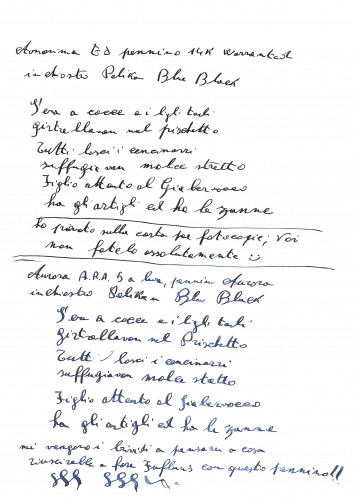 Anonima ED pennino 14K Warranted
inchiostro Pelikan Blue Black
S'era a cocce e i ligli tarli
girtrellavan nel pischetto
Tutti losci i cencinarri
suffuggiavan molce stretto
Figlio attento al Giaberwocco
ha gli artigli ed ha le zanne
ho provato sulla carta per fotocopie, voi
non fatelo assolutamente
Aurora A.R.A. 5 a leva, pennino Aurora
inchiostro Pelikan Blue Black
S'era a cocce e i ligli tarli
girtrellavan nel Prischetto
Tutti losci i cencinarri
suffuggiavan molce stretto
Figlio attento al Giaberwocco
ha gli artigli ed ha le zanne
mi vengono i brividi a pensare a cosa
riuscirebbe a fare con questo pennino!!
§§§ §§§